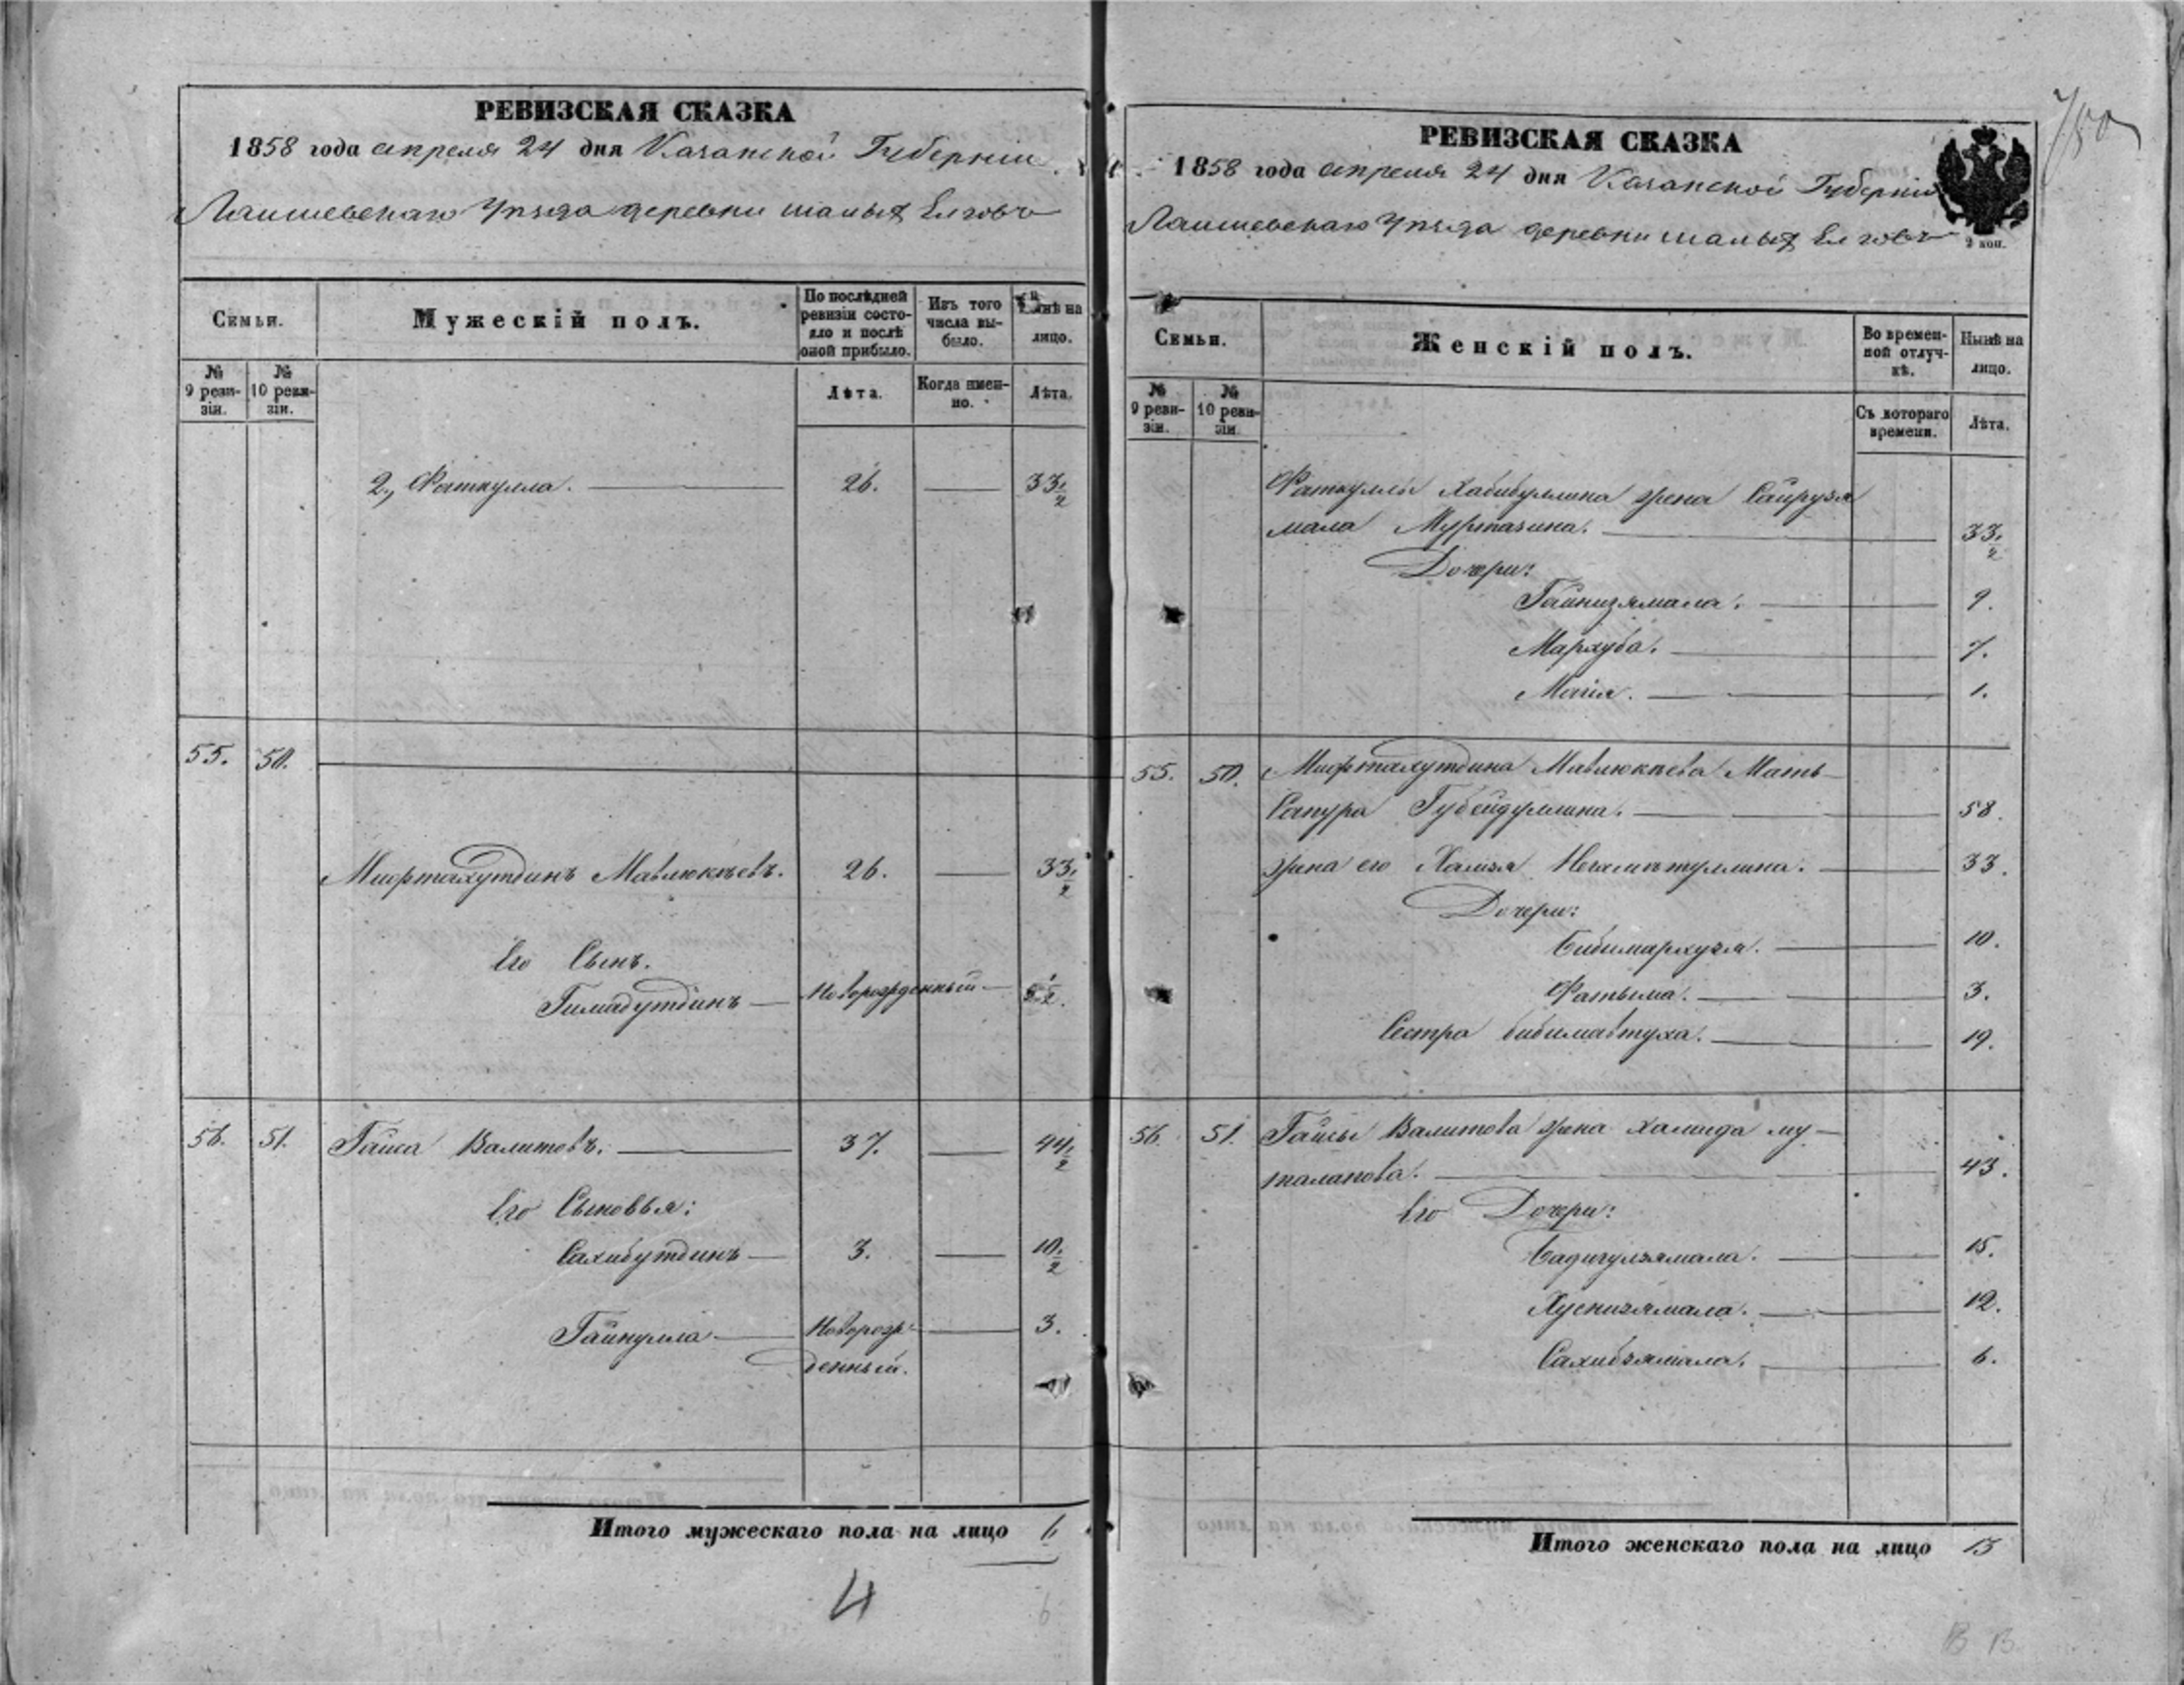 РЕВИЗСКАЯ СКАЗКА
1858 года апреля 24 дня Казанской Губерніи
Лаишевскаго Уѣзда деревни малыхъ Елговъ
Семьи.
Мужескій полъ.
По послѣдней ревизіи состояло и послѣ оной прибыло.
Изъ того числа выбыло.
Нынѣ на лицо.
№ 9 ревизіи.
№ 10 ревизіи.
Лѣта.
Когда именно.
Лѣта.
2., Фаткулла. 26. 33 1/2
55. 50.
Мифтахутдинъ Мавлюкѣевъ. 26. 33 1/2
Его Сынъ.
Гимадутдинъ Новорожденный 1/2.
56. 51. Гайса Валитовъ. 37. 44 1/2
Его Сыновья:
Сахибутдинъ 3. 10 1/2
Гайнулла Новорож- 3.
денный.
Итого мужескаго пола на лицо 6
4
6
РЕВИЗСКАЯ СКАЗКА
1858 года апреля 24 дня Казанской Губерніи
Лаишевскаго Уѣзда деревни малыхъ Елговъ
2 коп.
Семьи.
Женскій полъ.
Во временной отлучкѣ.
Нынѣ на лицо.
№ 9 ревизіи.
№ 10 ревизіи.
Съ котораго времени.
Лѣта.
Фаткуллы Хабибуллина жена Сайрузя
мала Муртазина. 33 1/2
Дочери:
Гайнизямала. 9.
Мархуба. 7.
1.
55. 50. Мифтахутдина Мавлюкѣева Мать
Сапура Губейдуллина. 58.
жена его Негаметуллина. 33.
Дочери:
10.
Фатыма. 3.
Сестра бибимавтуха. 19.
56. 51. Гайсы Валитова жена Хамида му-
талапова. 43.
Его Дочери:
Бадигулзямала. 15.
Хуснизямала. 12.
Сахибзямала. 6.
Итого женскаго пола на лицо 13